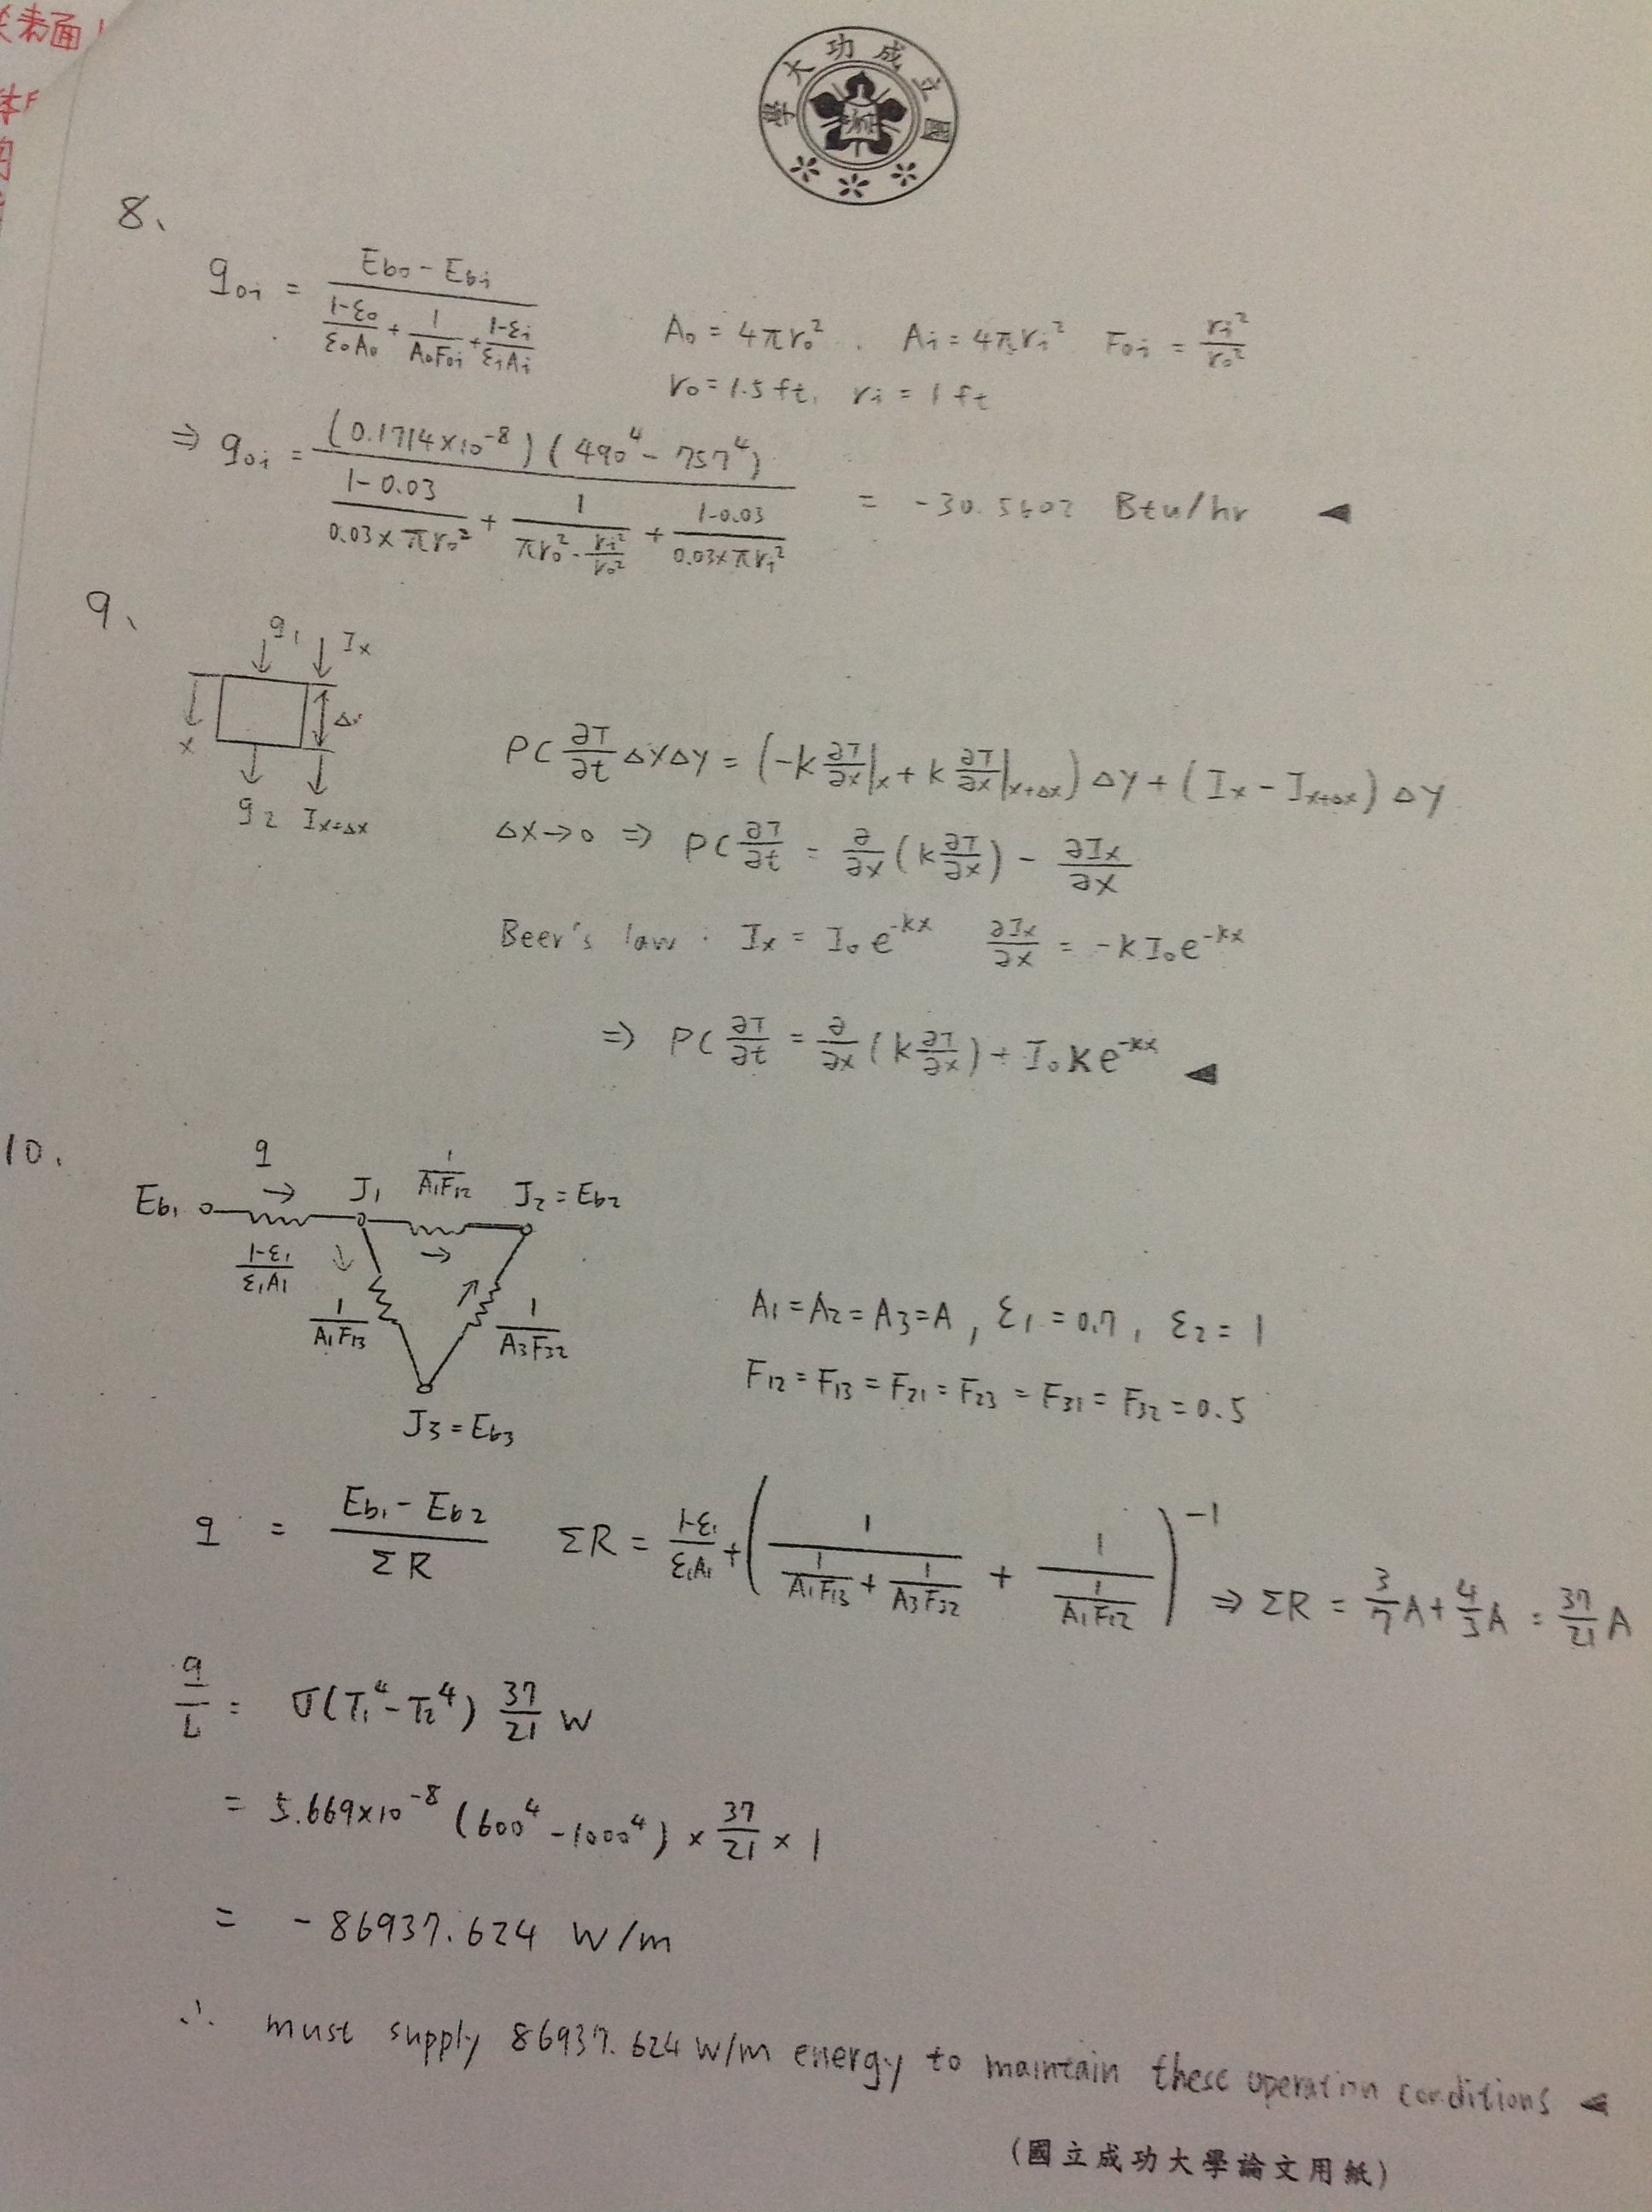 表面
体
國立成功大學
8、
q_oi = (E_bo - E_bi) / ((1-ε_o)/(ε_oA_o) + 1/(A_oF_oi) + (1-ε_i)/(ε_iA_i))
A_o = 4πr_o² . A_i = 4πr_i² F_oi = r_i²/r_o²
r_o = 1.5 ft, r_i = 1 ft
⇒ q_oi = (0.1714×10⁻⁸)(490⁴ - 757⁴) / ((1-0.03)/(0.03×πr_o²) + 1/(πr_o²·r_i²/r_o²) + (1-0.03)/(0.03×πr_i²)) = -30.5602 Btu/hr ◄
9、
q₁ I_x
x Δx
q₂ I_x+Δx
ρC ∂T/∂t ΔxΔy = (-k ∂T/∂x|_x + k ∂T/∂x|_x+Δx) Δy + (I_x - I_x+Δx) Δy
Δx→0 ⇒ ρC ∂T/∂t = ∂/∂x (k ∂T/∂x) - ∂I_x/∂x
Beer's law : I_x = I₀e^-kx ∂I_x/∂x = -kI₀e^-kx
⇒ ρC ∂T/∂t = ∂/∂x (k ∂T/∂x) + I₀ke^-kx ◄
10.
q
E_b1 J₁ 1/(A₁F₁₂) J₂ = E_b2
(1-ε₁)/(ε₁A₁)
1/(A₁F₁₃) 1/(A₃F₃₂)
J₃ = E_b3
A₁ = A₂ = A₃ = A , ε₁ = 0.7 , ε₂ = 1
F₁₂ = F₁₃ = F₂₁ = F₂₃ = F₃₁ = F₃₂ = 0.5
q = (E_b1 - E_b2)/ΣR ΣR = (1-ε₁)/(ε₁A₁) + (1/(1/(A₁F₁₃) + 1/(A₃F₃₂)) + 1/(1/(A₁F₁₂)))⁻¹ ⇒ ΣR = 3/7 A + 4/3 A = 37/21 A
q/L = σ(T₁⁴ - T₂⁴) 37/21 W
= 5.669×10⁻⁸ (600⁴ - 1000⁴) × 37/21 × 1
= - 86937.624 W/m
∴ must supply 86937.624 W/m energy to maintain these operation conditions ◄
(國立成功大學論文用紙)